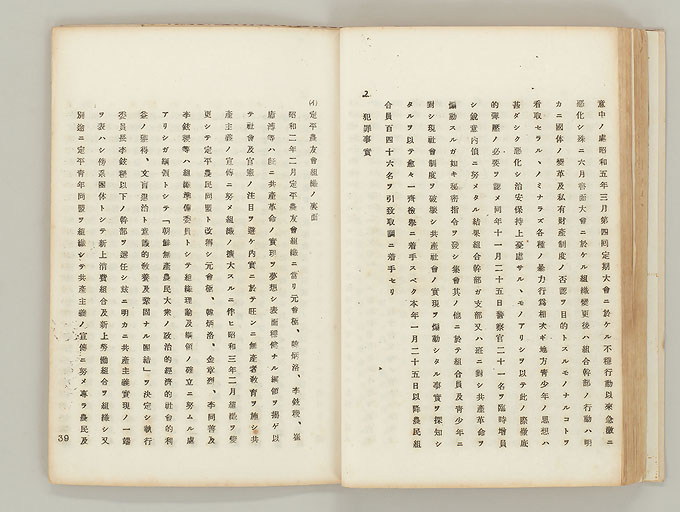 意中ノ處昭和五年三月第四回定期大會ニ於ケル不穩行動以來急激ニ
惡化シ殊ニ六月書面大會ニ於ケル組織變更後ハ組合幹部ノ行動ハ明
カニ國体ノ變革及私有財產制度ノ否認ヲ目的トスルモノナルコトヲ
看取セラル、ノミナラズ各種ノ暴力行爲相次ギ地方靑少年ノ思想ハ
甚ダシク惡化シ治安保持上憂慮サル、モノアリシヲ以テ此ノ際徹底
的彈壓ノ必要ヲ認メ同年十一月二十五日警察官二十一名ヲ臨時增員
シ銳意內偵ニ努メタル結果組合幹部ガ支部又ハ班ニ對シ共產革命ヲ
煽動スルガ如キ秘密指令ヲ發シ集會其ノ他ニ於テ組合員及靑少年ニ
對シ現社會制度ヲ破壞シ共產社會ノ實現ヲ煽動シタル事實ヲ探知シ
タルヲ以テ愈々一齊檢擧ニ着手スベク本年一月二十五日以降農民組
合員百四十六名ヲ引致取調ニ着手セリ
2 犯罪事實
(イ) 定平農友會組織ノ裏面
昭和二年二月定平農友會組織ニ當リ元會極、韓炳洛、李鉉稷、崔
等ハ旣ニ共產革命ノ實現ヲ夢想シ表面穩健ナル綱領ヲ揭ゲ以
テ社會及官憲ノ注目ヲ避ケ內實ニ於テ旺ンニ無產者敎育ヲ施シ共
產主義ノ宣傳ニ努メ組織ノ擴大スルニ伴ヒ昭和三年二月組織ヲ變
更シテ定平農民同盟ト改稱シ元會極、韓炳洛、金章烈、李同善及
李鉉稷等ハ組織準備委員トシテ組織理論及綱領ノ確立ニ努ムル處
アリシガ綱領トシテ「朝鮮無產農民大衆ノ政治的經濟的社會的利
益ノ獲得、文盲退治ト意識的敎養及鞏固ナル團結」ヲ決定シ執行
委員長李鉉稷以下ノ幹部ヲ選任シ玆ニ明カニ共產主義實現ノ一端
ヲ表ハシ傍系團体トシテ新上消費組合及新上勞働組合ヲ組織シ又
別途ニ定平靑年同盟ヲ組織シテ共產主義ノ宣傳ニ努メ專ラ農民及
39